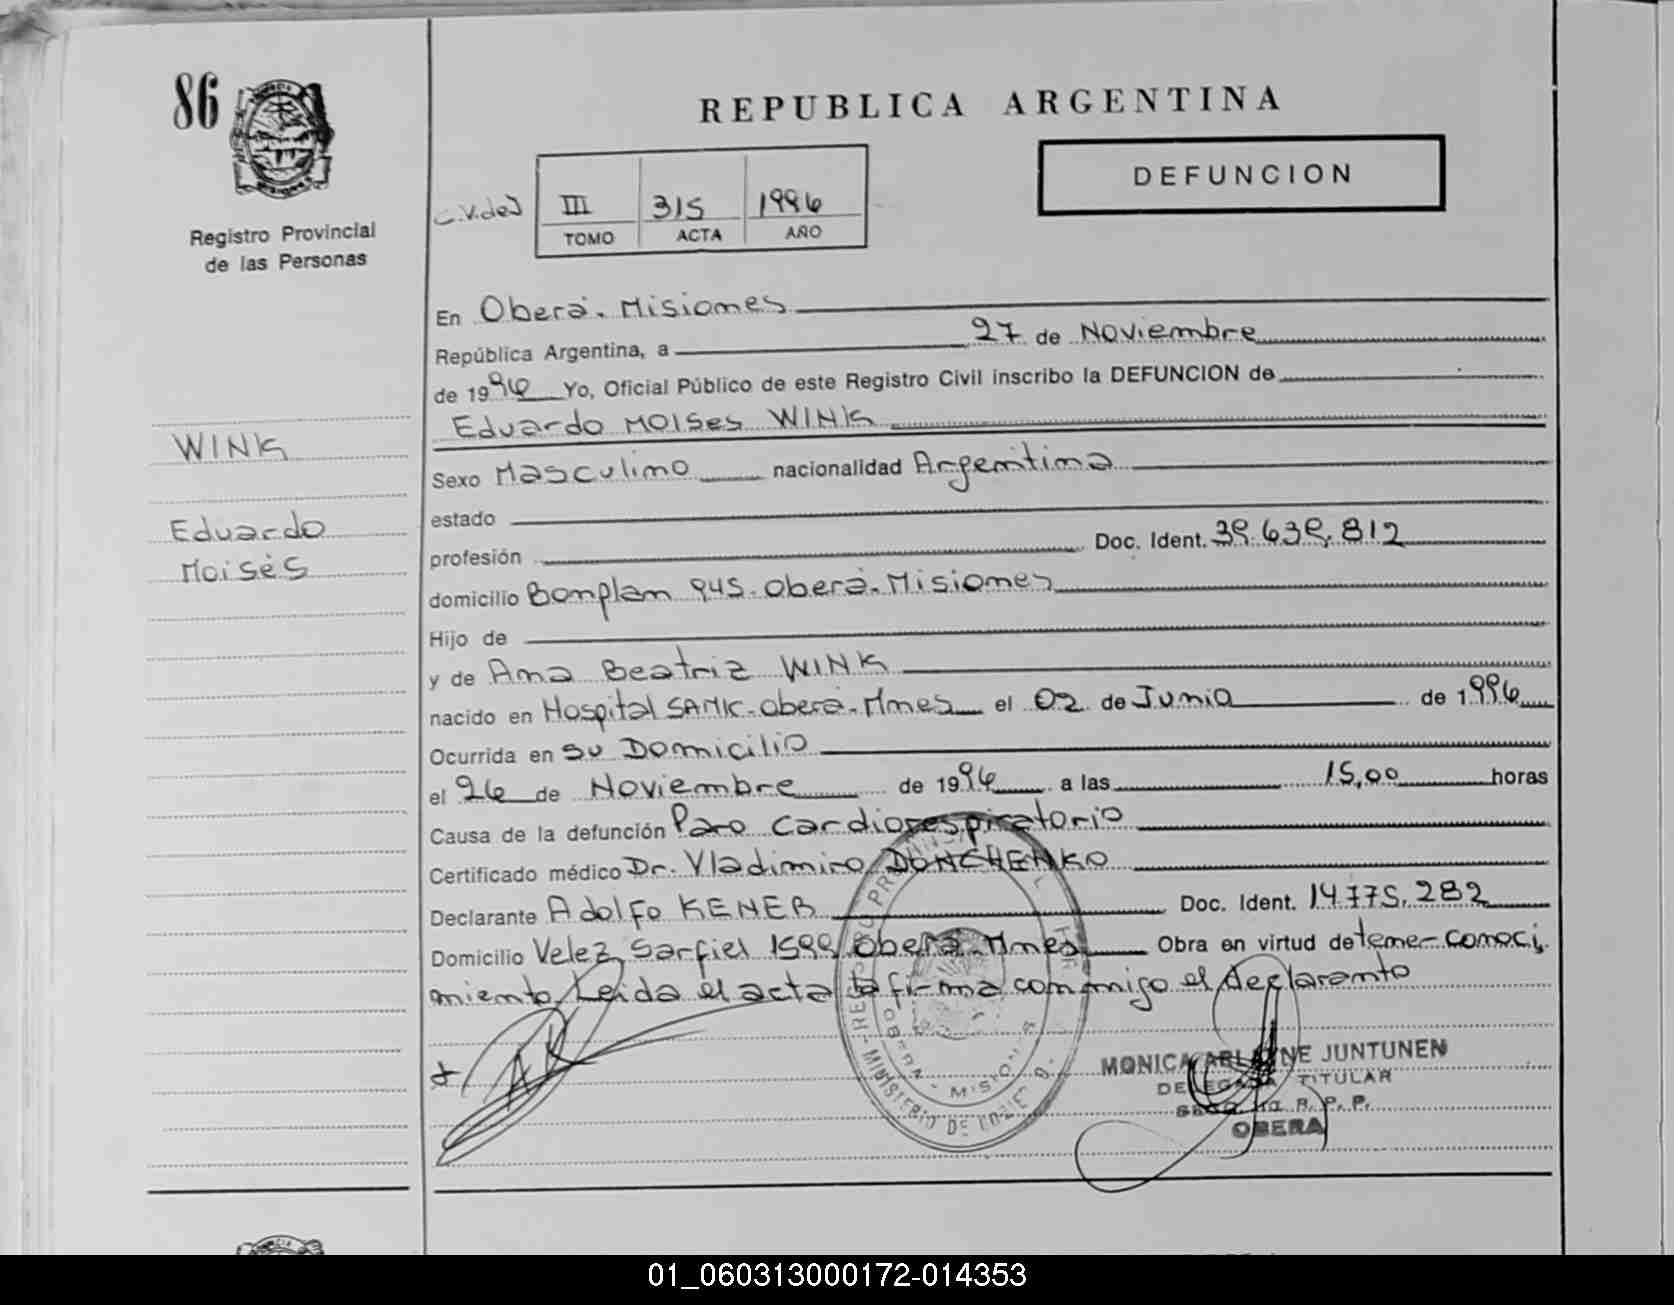 86
REPUBLICA ARGENTINA
DEFUNCION
Registro Provincial
de las Personas
III 315 1996
TOMO ACTA AÑO
En Oberá. Misiones
República Argentina, a 27 de Noviembre
de 1996 Yo, Oficial Público de este Registro Civil inscribo la DEFUNCION de
Eduardo Moises WINK
WINK
Eduardo
Moisés
Sexo Masculino nacionalidad Argentina
estado
profesión Doc. Ident. 39.639.812
domicilio Bonplan 945. Oberá. Misiones
Hijo de
y de Ana Beatriz WINK
nacido en Hospital SAMIC. Oberá. Mnes el 02 de Junio de 1996
Ocurrida en su Domicilio
el 26 de Noviembre de 1996 a las 15,00 horas
Causa de la defunción Paro cardiorespiratorio
Certificado médico Dr. Vladimiro DONCHENKO
Declarante Adolfo KENER Doc. Ident. 14.775.282
Domicilio Velez Sarfiel 1599. Oberá. Mnes Obra en virtud de tener conoci
miento. Leida el acta la firma conmigo el declarante
MONICA ARLYNE JUNTUNEN
DELEGADA TITULAR
R. P. P.
OBERA
OBERA - MISIONES
01_060313000172-014353